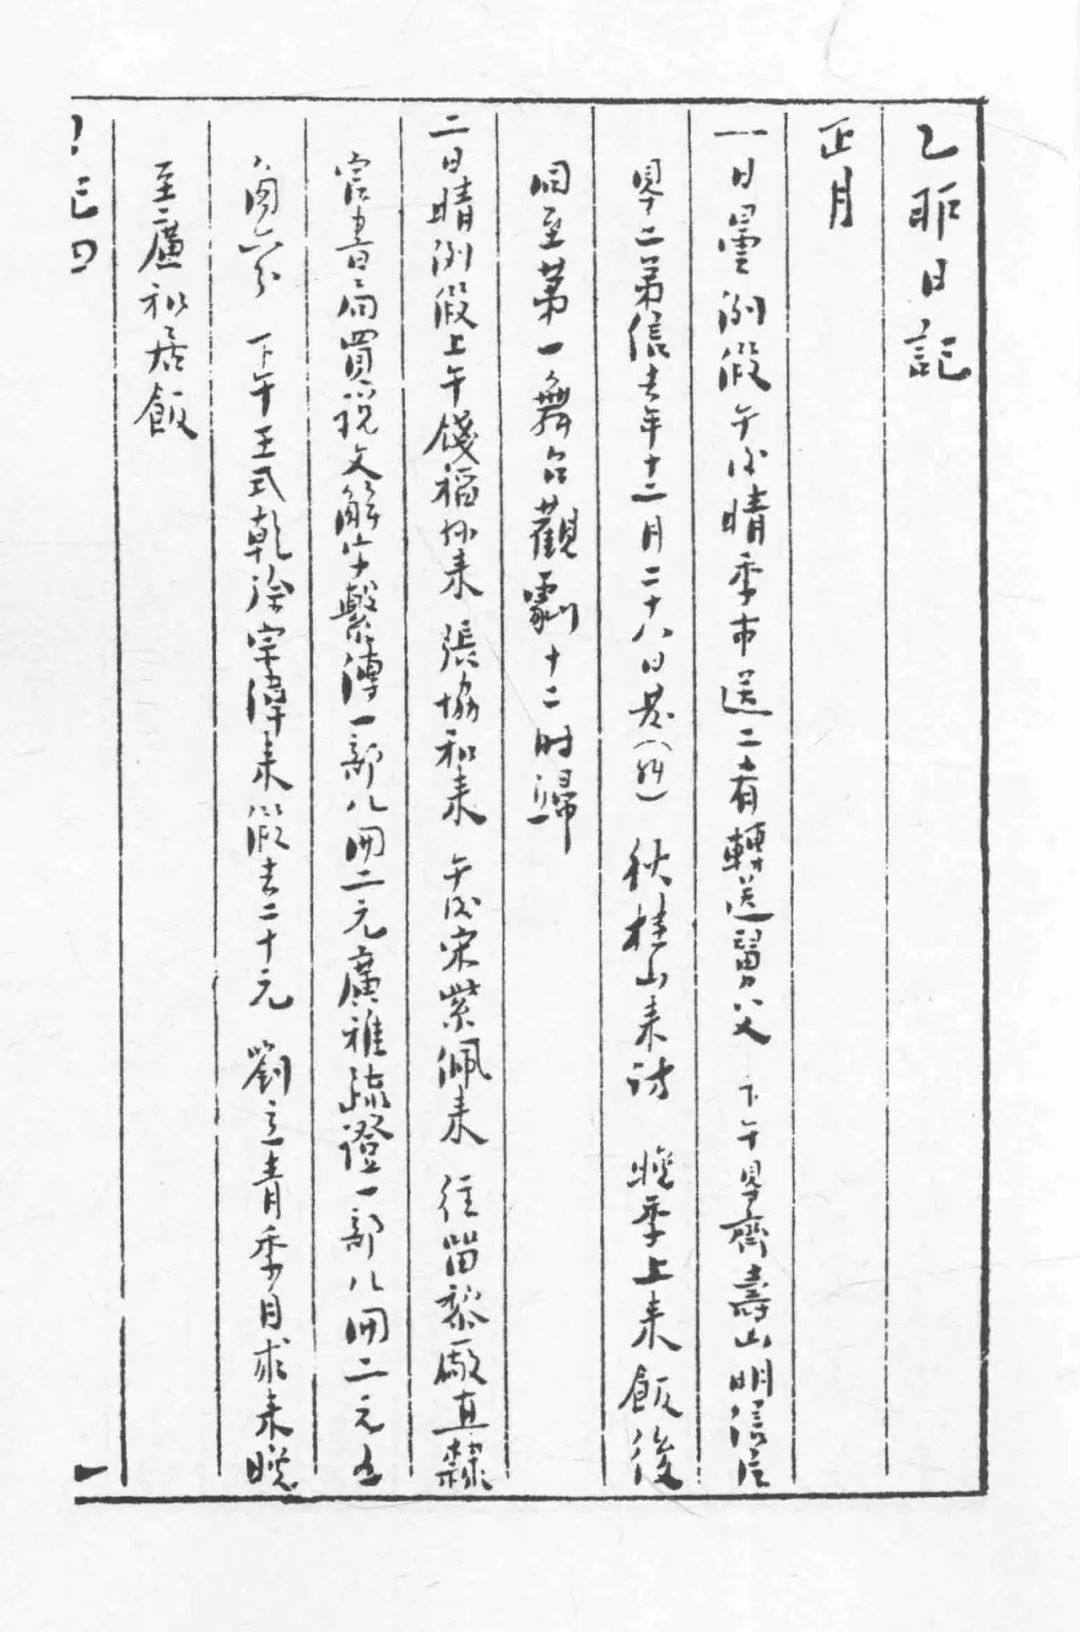 乙卯日記
正月
一日曇例假午後晴季市送二肴轉送舅父 下午得齊壽山明信片
得二弟信去年十二月二十八日發 狄桂山來訪 晚季上來飯後
同至第一舞台觀劇十二時歸
二日晴例假上午錢稻孫來 張協和來 午後宋紫佩來 往留黎廠直隸
官書局買說文解字繫傳一部八冊二元廣雅疏證一部八冊二元五
角六分 下午王式乾徐宗偉來假去二十元 劉立青季自求來晚
至廣和居飯
一